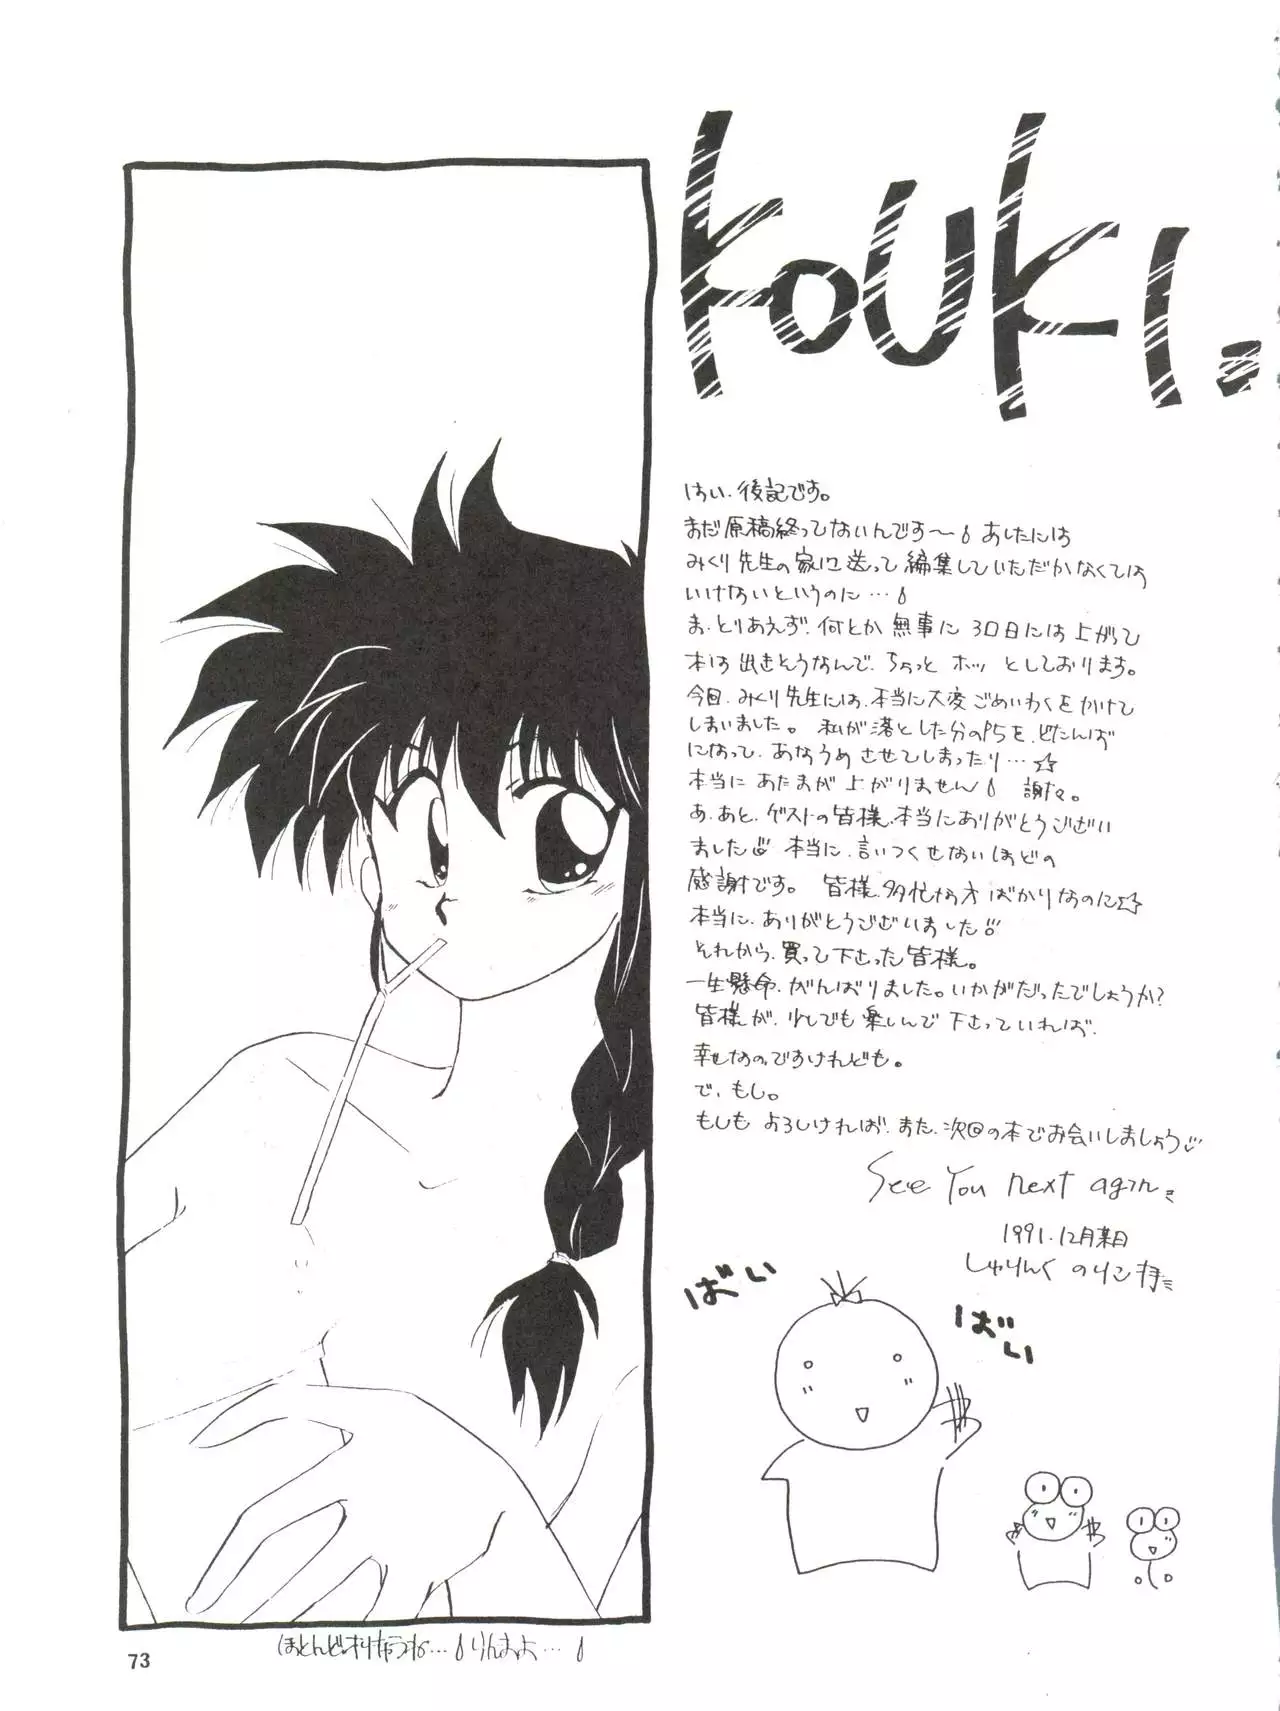 KOUKI.
はい.後記です。
まだ原稿終ってないんです〜 あしたには
みくり先生の家に送って編集していただかなくては
いけないというのに…
ま.とりあえず.何とか無事に30日には上がって
本は出きそうなんで.ちょっとホッとしております。
今回.みくり先生には.本当に大変ごめいわくをかけて
しまいました。私が落とした分のP5を.どたんば
になって.あなうめさせてしまったり…☆
本当にあたまが上がりません 謝々。
あ.あと.ゲストの皆様.本当にありがとうござい
ました 本当に.言いつくせないほどの
感謝です。皆様.多忙な方ばかりなのに☆
本当に.ありがとうございました
それから.買って下さった皆様。
一生懸命.がんばりました。いかがだったでしょうか?
皆様が.少しでも楽しんで下さっていれば.
幸せなのですけれども。
で.もし。
もしもよろしければ.また.次回の本でお会いしましょう
See You next again
1991.12月末日
しゅりんくのりこ
ばい
ばい
ほとんどオリキャラね…
73